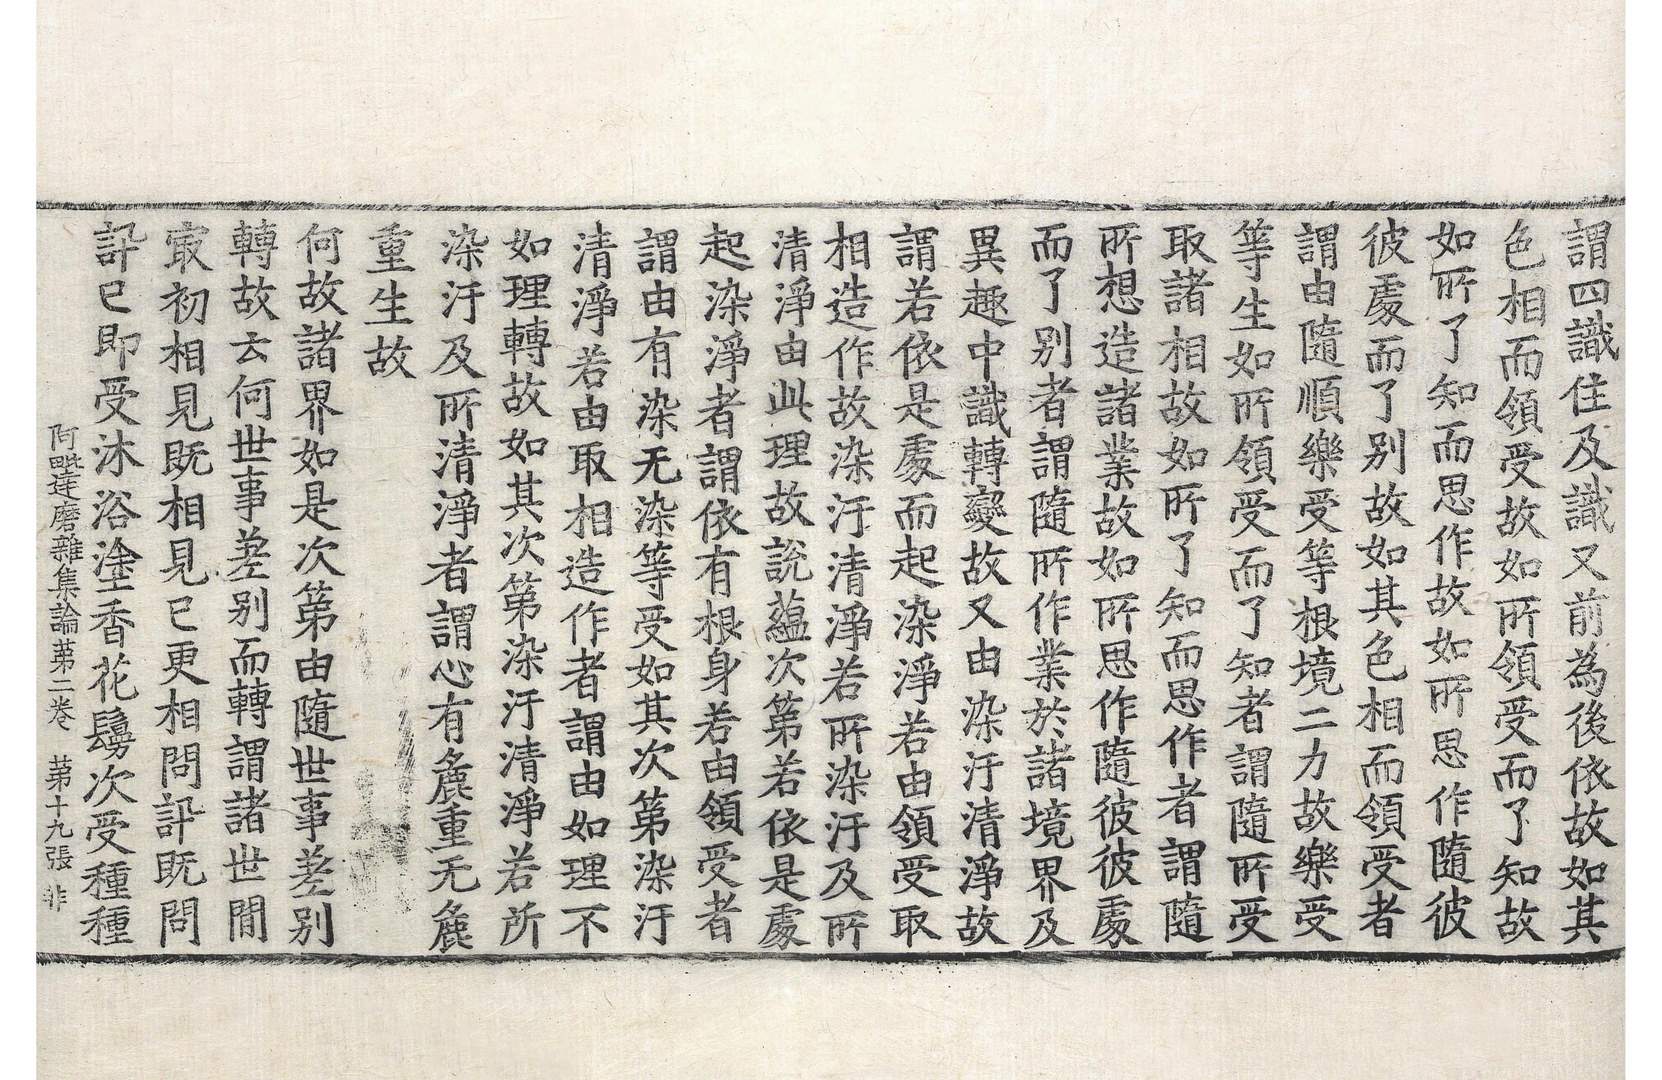 謂四識住及識又前為後依故如其
色相而領受故如所領受而了知故
如所了知而思作故如所思作隨彼
彼處而了別故如其色相而領受者
謂由隨順樂受等根境二力故樂受
等生如所領受而了知者謂隨所受
取諸相故如所了知而思作者謂隨
所想造諸業故如所思作隨彼彼處
而了別者謂隨所作業於諸境界及
異趣中識轉變故又由染汙清淨故
謂若依是處而起染淨若由領受取
相造作故染汙清淨若所染汙及所
清淨由此理故說蘊次第若依是處
起染淨者謂依有根身若由領受者
謂由有染无染等受如其次第染汙
清淨若由取相造作者謂由如理不
如理轉故如其次第染汙清淨若所
染汙及所清淨者謂心有麁重无麁
重生故
何故諸界如是次第由隨世事差別
轉故云何世事差別而轉謂諸世間
㝡初相見既相見已更相問訊既問
訊已即受沐浴塗香花鬘次受種種
阿毗達磨雜集論苐二卷 苐十九張 非